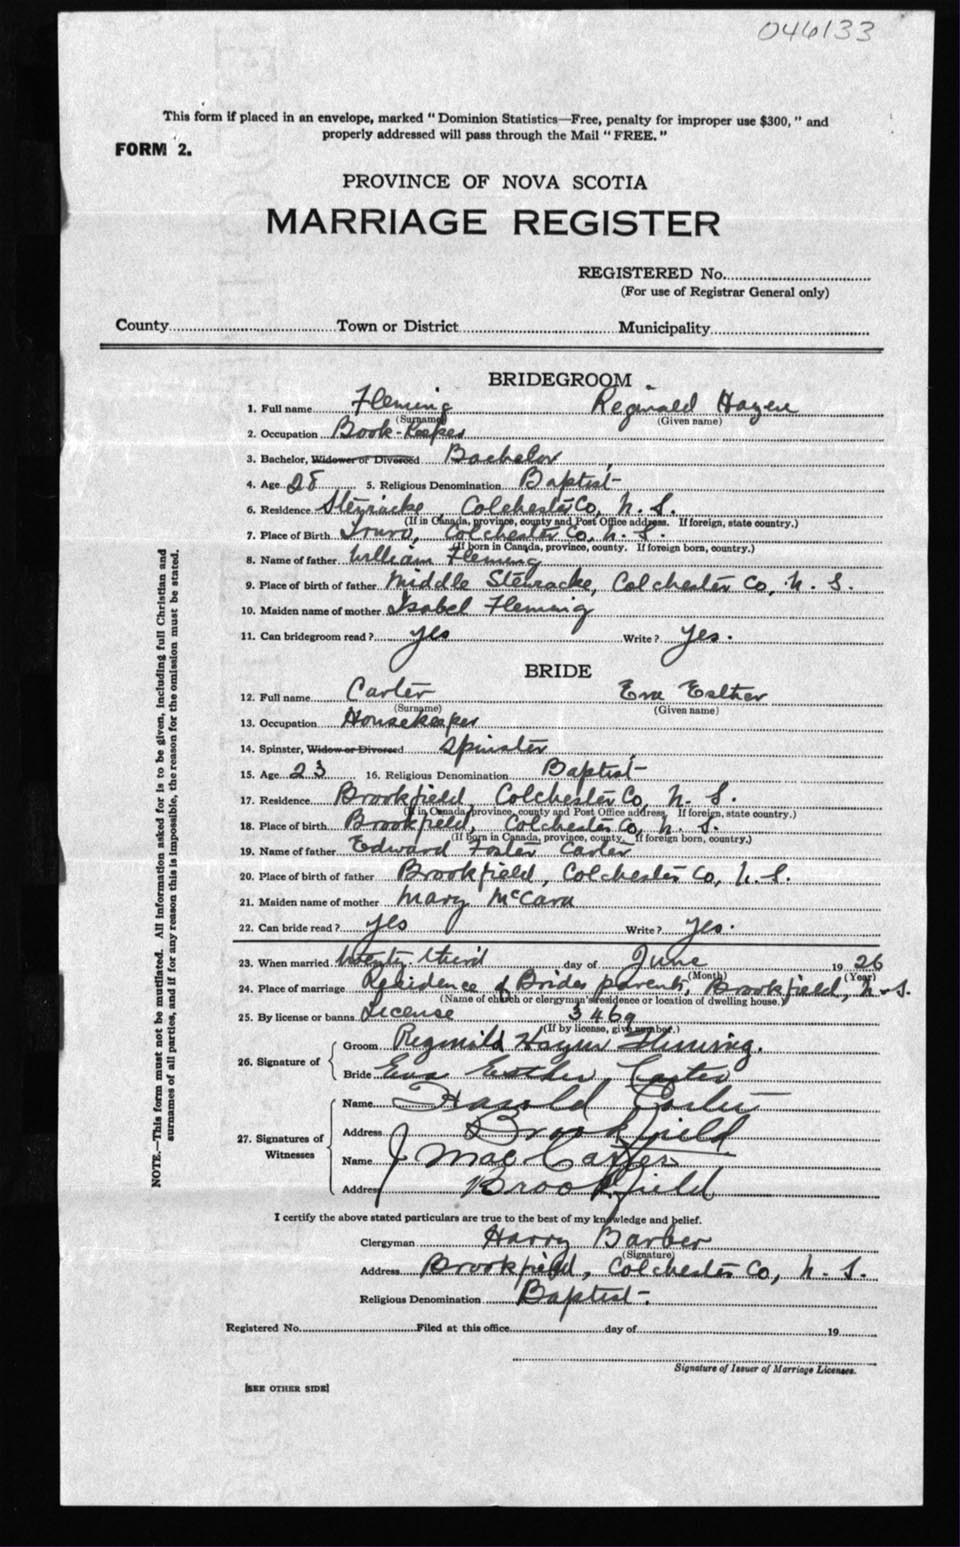 046133
This form if placed in an envelope, marked "Dominion Statistics—Free, penalty for improper use $300," and
properly addressed will pass through the Mail "FREE."
FORM 2.
PROVINCE OF NOVA SCOTIA
MARRIAGE REGISTER
REGISTERED No.
(For use of Registrar General only)
County Town or District Municipality
BRIDEGROOM
1. Full name Fleming Reginald Hayen
(Surname) (Given name)
2. Occupation Book-Keeper
3. Bachelor, Widower or Divorced Bachelor
4. Age 28 5. Religious Denomination Baptist
6. Residence Stewiacke, Colchester Co, N. S.
(If in Canada, province, county and Post Office address. If foreign, state country.)
7. Place of Birth Truro, Colchester Co, N. S.
(If born in Canada, province, county. If foreign born, country.)
8. Name of father William Fleming
9. Place of birth of father Middle Stewiacke, Colchester Co, N. S.
10. Maiden name of mother Isabel Fleming
11. Can bridegroom read? yes Write? yes.
BRIDE
12. Full name Carter Eva Esther
(Surname) (Given name)
13. Occupation Housekeeper
14. Spinster, Widow or Divorced Spinster
15. Age 23 16. Religious Denomination Baptist
17. Residence Brookfield, Colchester Co, N. S.
(If in Canada, province, county and Post Office address. If foreign, state country.)
18. Place of birth Brookfield, Colchester Co, N. S.
(If born in Canada, province, county. If foreign born, country.)
19. Name of father Edward Foster Carter
20. Place of birth of father Brookfield, Colchester Co, N. S.
21. Maiden name of mother Mary McCara
22. Can bride read? yes Write? yes.
23. When married twenty-third day of June 1926
(Month) (Year)
24. Place of marriage Residence of Brides parents, Brookfield, N.S.
(Name of church or clergyman's residence or location of dwelling house.)
25. By license or banns License 3469
(If by license, give number.)
26. Signature of
Groom Reginald Hayen Fleming.
Bride Eva Esther Carter
27. Signatures of Witnesses
Name Harold Carter
Address Brookfield
Name J Mac Carter
Address Brookfield
I certify the above stated particulars are true to the best of my knowledge and belief.
Clergyman Harry Barber
(Signature)
Address Brookfield, Colchester Co, N. S.
Religious Denomination Baptist.
Registered No. Filed at this office day of 19
Signature of Issuer of Marriage Licenses.
[SEE OTHER SIDE]
NOTE.—This form must not be mutilated. All information asked for is to be given, including full Christian and
surnames of all parties, and if for any reason this is impossible, the reason for the omission must be stated.